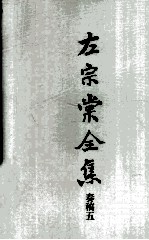 左宗棠全集
奏稿五